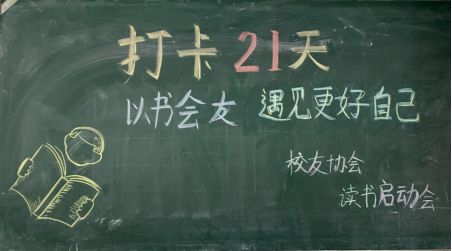 打卡21天
以书会友 遇见更好自己
校友协会
读书启动会